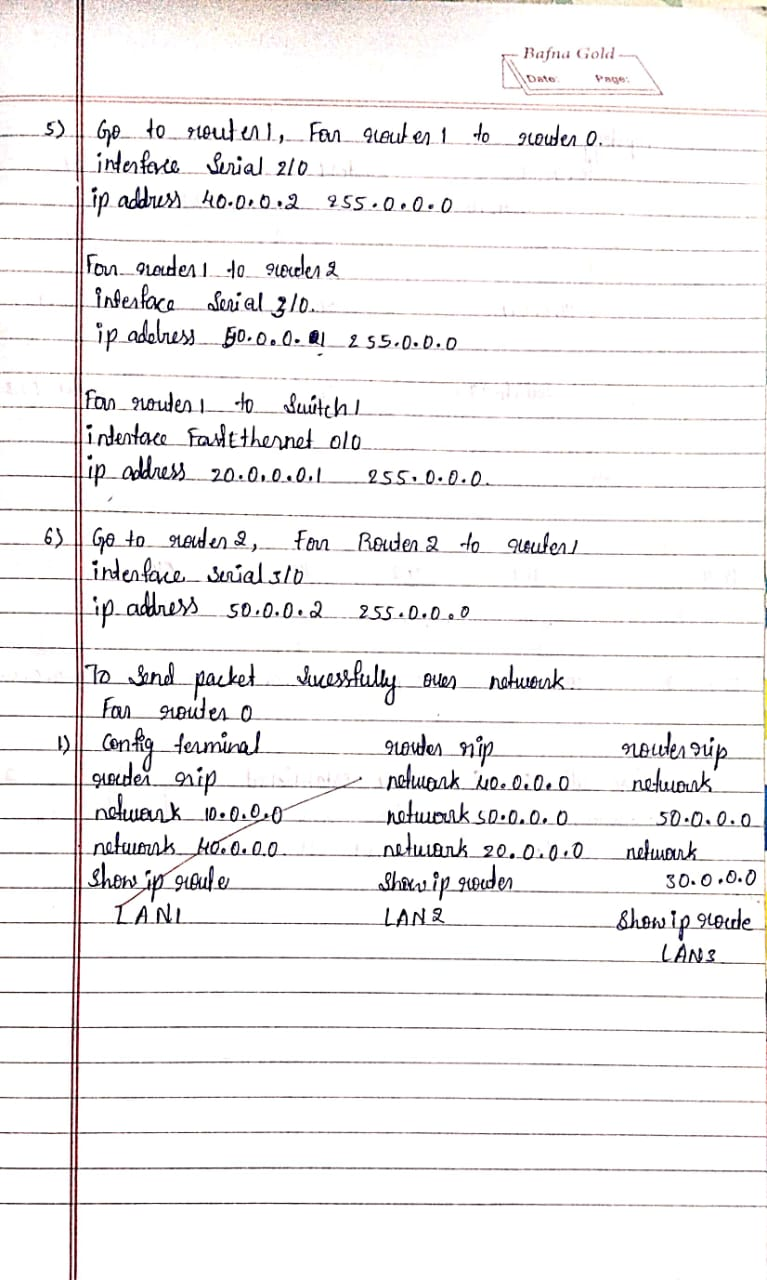 Bafna Gold
Date: Page:
5) Go to router1, For router 1 to router 0.
interface Serial 2/0
ip address 40.0.0.2 255.0.0.0
For router1 to router 2
interface Serial 3/0.
ip address 50.0.0.1 255.0.0.0
For router1 to Switch1
interface FastEthernet 0/0
ip address 20.0.0.0.1 255.0.0.0.
6) Go to router 2, For Router 2 to router1
interface serial 3/0
ip address 50.0.0.2 255.0.0.0
To Send packet sucessfully over network.
For router 0
1) Config terminal router rip router rip
router rip network 40.0.0.0 network
network 10.0.0.0 network 50.0.0.0 50.0.0.0
network 40.0.0.0 network 20.0.0.0 network
Show ip route Show ip router 30.0.0.0
LAN1 LAN2 Show ip route
LAN3